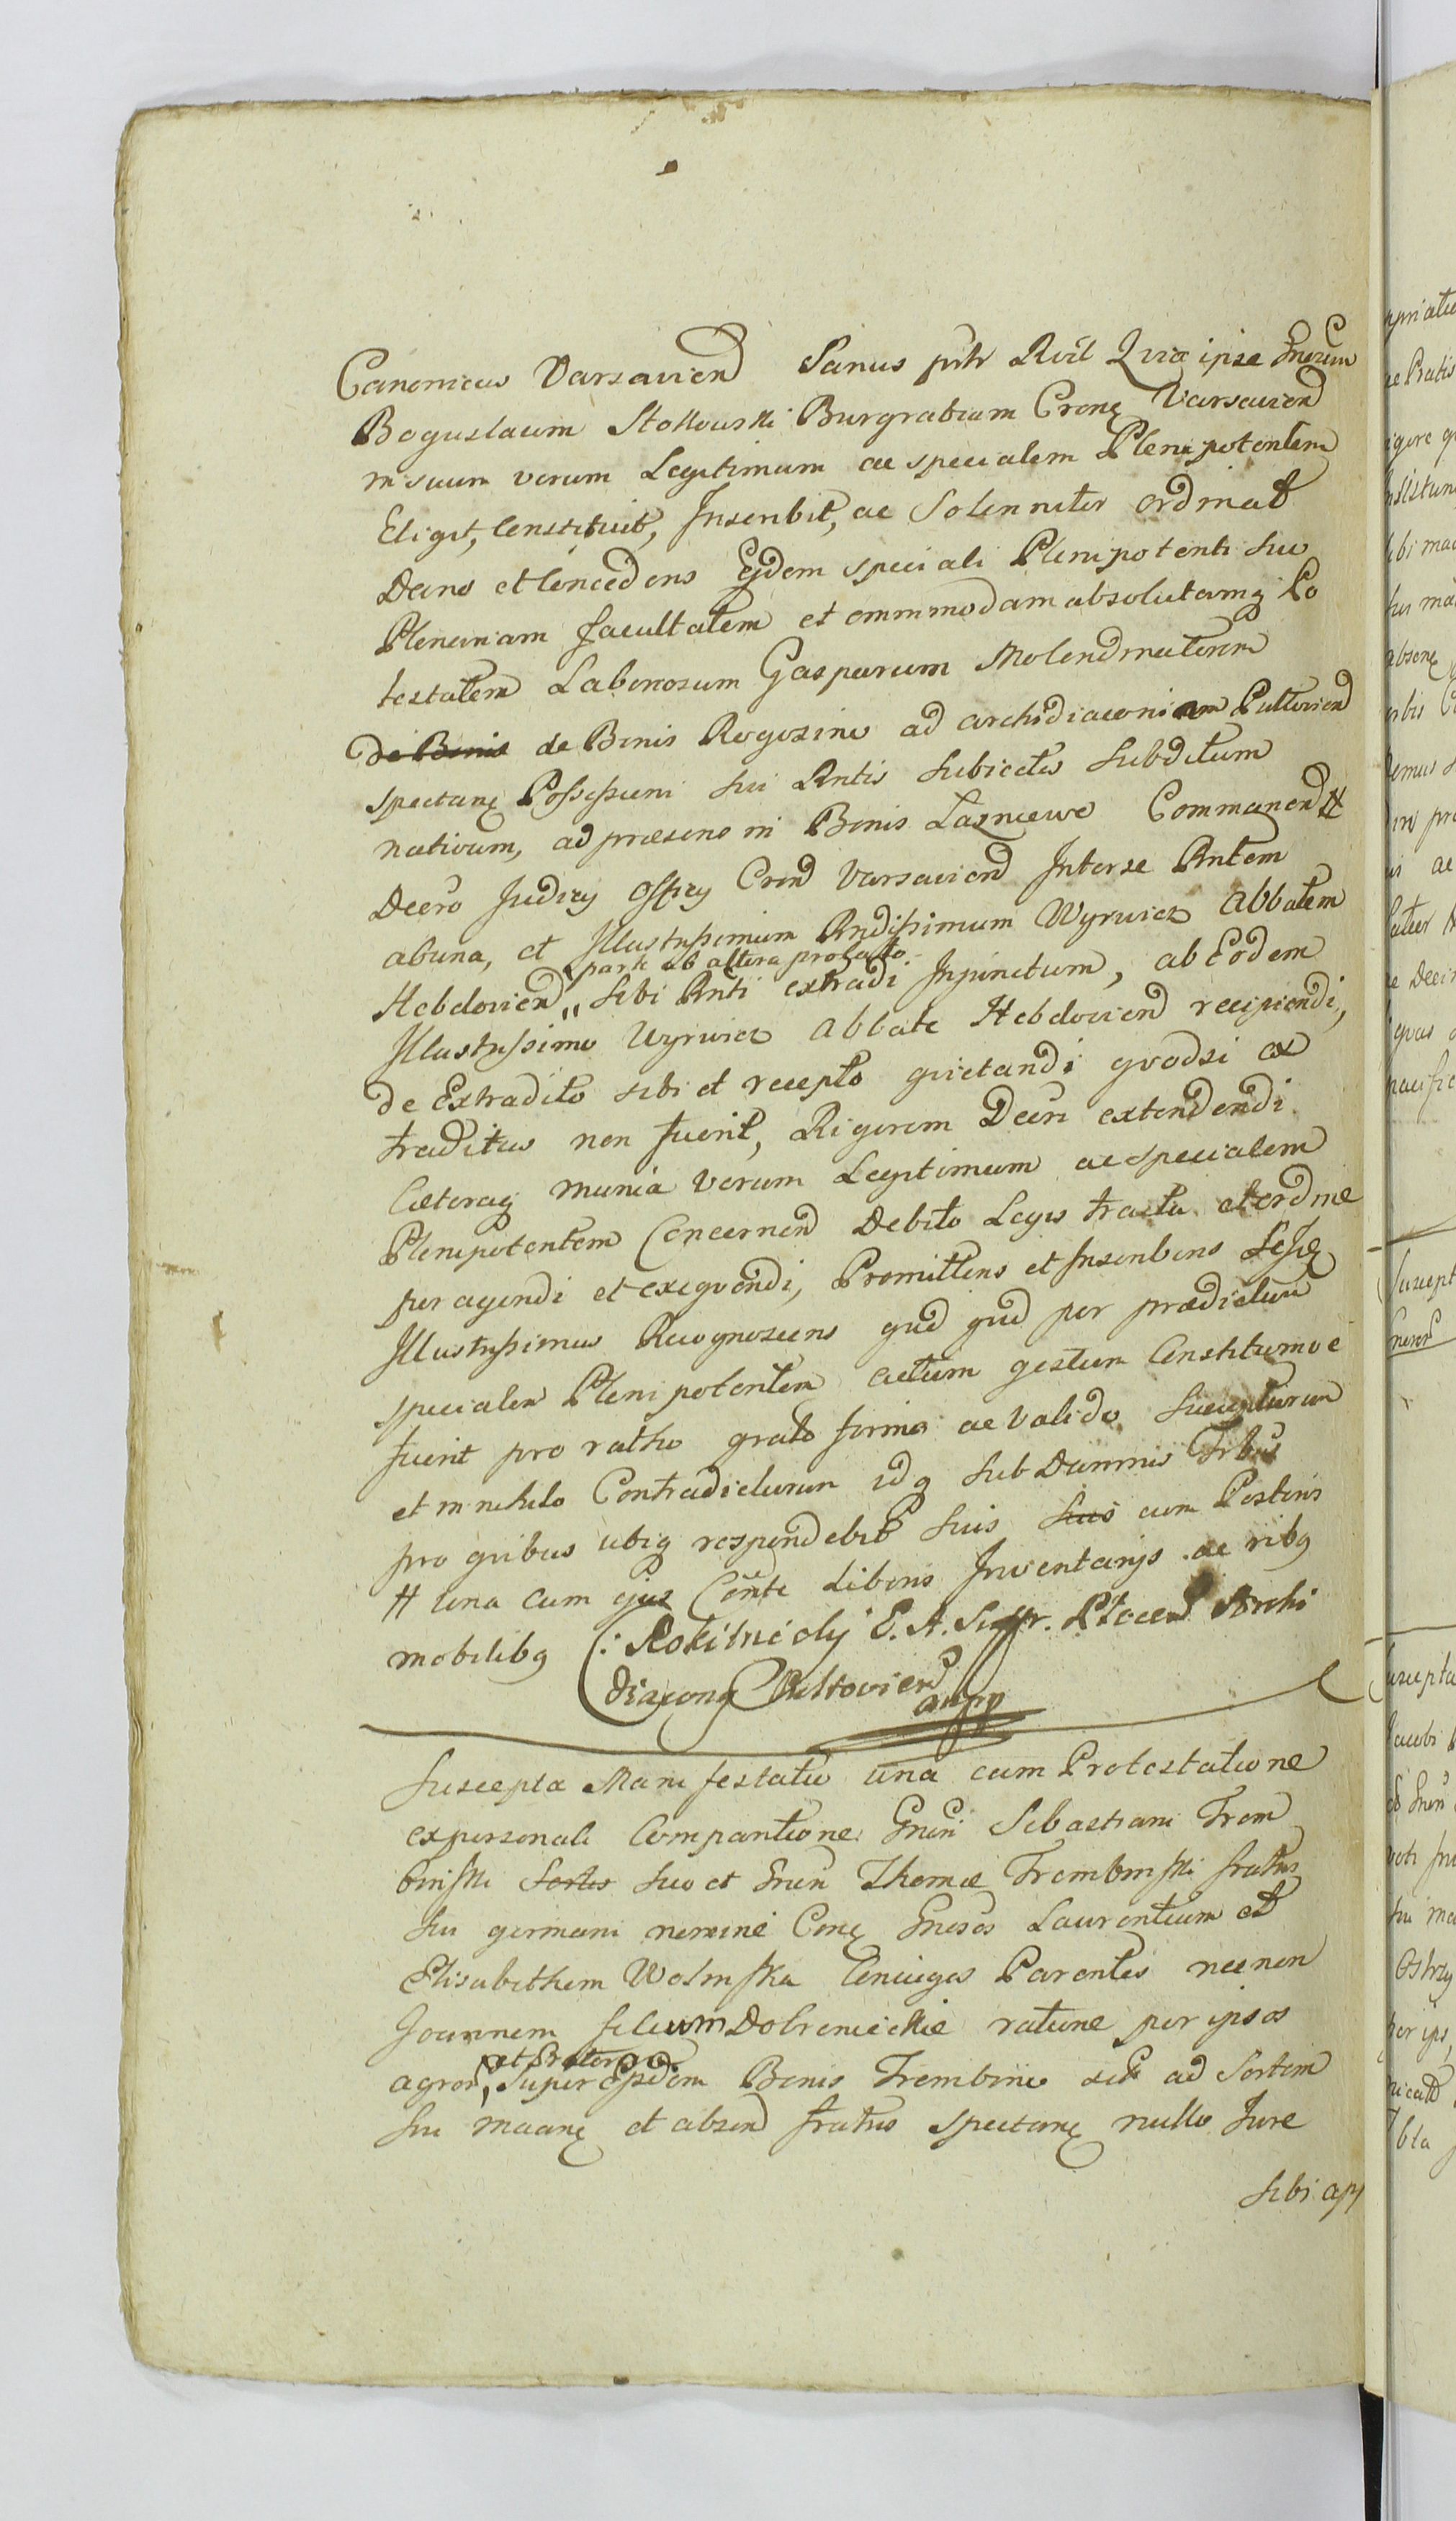 Canonicus Varsaviens Sanus pntr Rcit Quia ipse Gnerum
Boguslaum Stokowski Burgrabium Crens Varsavien
in suum verum Legitimum ac specialem Plenipotentem
Eligit, Constituit, Inscribit, ac Solenniter ordinat
Dans et Concedens Eidem speciali Plenipotenti suo
Plenariam facultatem et ommimodam absolutamq Po
testatem Laboriosum Gasparum Molendinatorem
de Bonis de Bonis Rogozino ad archidiaconiam Pultovien
spectang Possessioni sui Rntis subiectis subditum
nativum, ad præsens in Bonis Lazniewo Commanend #
Decro Judicy Officy Cren Varsavien Inter se Rntem
ab una, et Illustrissimum Rndissimum Wyrwicz Abbatem
parte ab altera prolato
Hebdovien " sibi Rnti extradi Injunctum, ab Eodem
Illustrissimo Wyrwicz Abbate Hebdovien recipiendi,
de Extradito sibi et recepto quietandi quodsi ex
traditus non fuerit, Rigorem Decri extendendi
Cæteraq munia verum Legitimum ac specialem
Plenipotentem Concernen Debito Legis tractu et ordine
peragendi et exequendi, Promittens et Inscribens Sese
Illustrissimus Recognoscens qud qud per prædictum
specialem Plenipotentem actum gestum Constitumve
fuerit pro ratho grato firmo ac valido Suscepturum
et in nihilo Contradicturum idq sub Damnis Trbus
pro quibus ubiq respondebit suis suis cum Postoris
# una cum ejus Conte Liberis Inventarijs ac ribq
mobilibq (: Rokitnicky E. A. Suffr. Płocen Archi
diaconq Pultovien
mpp
Suscepta Manifestatio una cum Protestatione
ex personali Comparitione Gneri Sebastiani Trem
binski Sortis suo et Gnen Thomæ Trembinski fratris
sui germani nomine Cong Gnesos Laurentium et
Elisabetham Wolinska Coniuges Parentes necnon
Joannem filium Dobrenieckie ratione per ipsos
et Prator
agror, super Eisdem Bonis Trembino ad Sortem
sui et absen fratris spectang nullo Jure
sibi ap